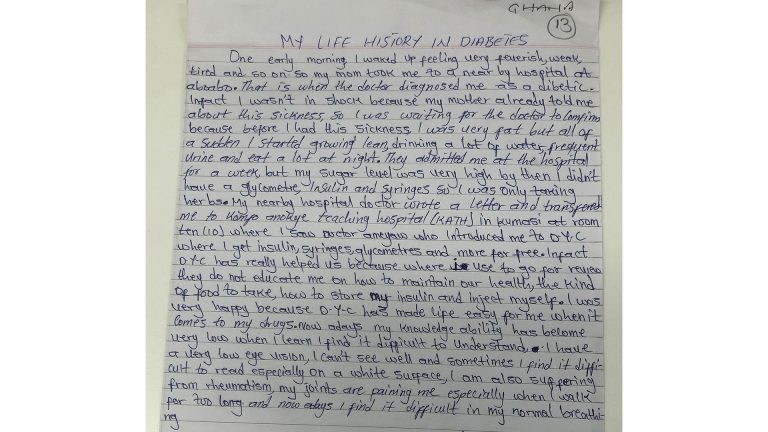 GHANA
13
MY LIFE HISTORY IN DIABETES
One early morning I waked up feeling very feverish, weak,
tired and so on so my mom took me to a near by hospital at
aboabo. That is when the doctor diagnosed me as a dibetic.
Infact I wasn't in shock because my mother already told me
about this sickness, so I was waiting for the doctor to comfirm
because before I had this sickness I was very fat but all of
a sudden I started growing lean, drinking a lot of water, frequent
urine and eat a lot at night. They admitted me at the hospital
for a week, but my sugar level was very high by then I didn't
have a glycometre, Insulin and syringes so I was only taking
herbs. My nearby hospital doctor wrote a letter and transfered
me to Komfo anokye teaching hospital [KATH] in kumasi at room
ten (10) where I saw Doctor ameyaw who introduced me to D.Y.C
where I get insulin, syringes, glycometres and more for free. Infact
D.Y.C has really helped us because where use to go for review
they do not educate me on how to maintain our health, the kind
of food to take, how to store my insulin and inject myself. I was
very happy because D-Y-C has made life easy for me when it
comes to my drugs. Now adays my knowledge ability has become
very low when I learn I find it difficult to understand. I have
a very low eye vision, I can't see well and sometimes I find it diffi-
cult to read especially on a white surface, I am also suffering
from rheumatism, my joints are paining me especially when I walk
for too long and now adays I find it difficult in my normal breathi-
ng